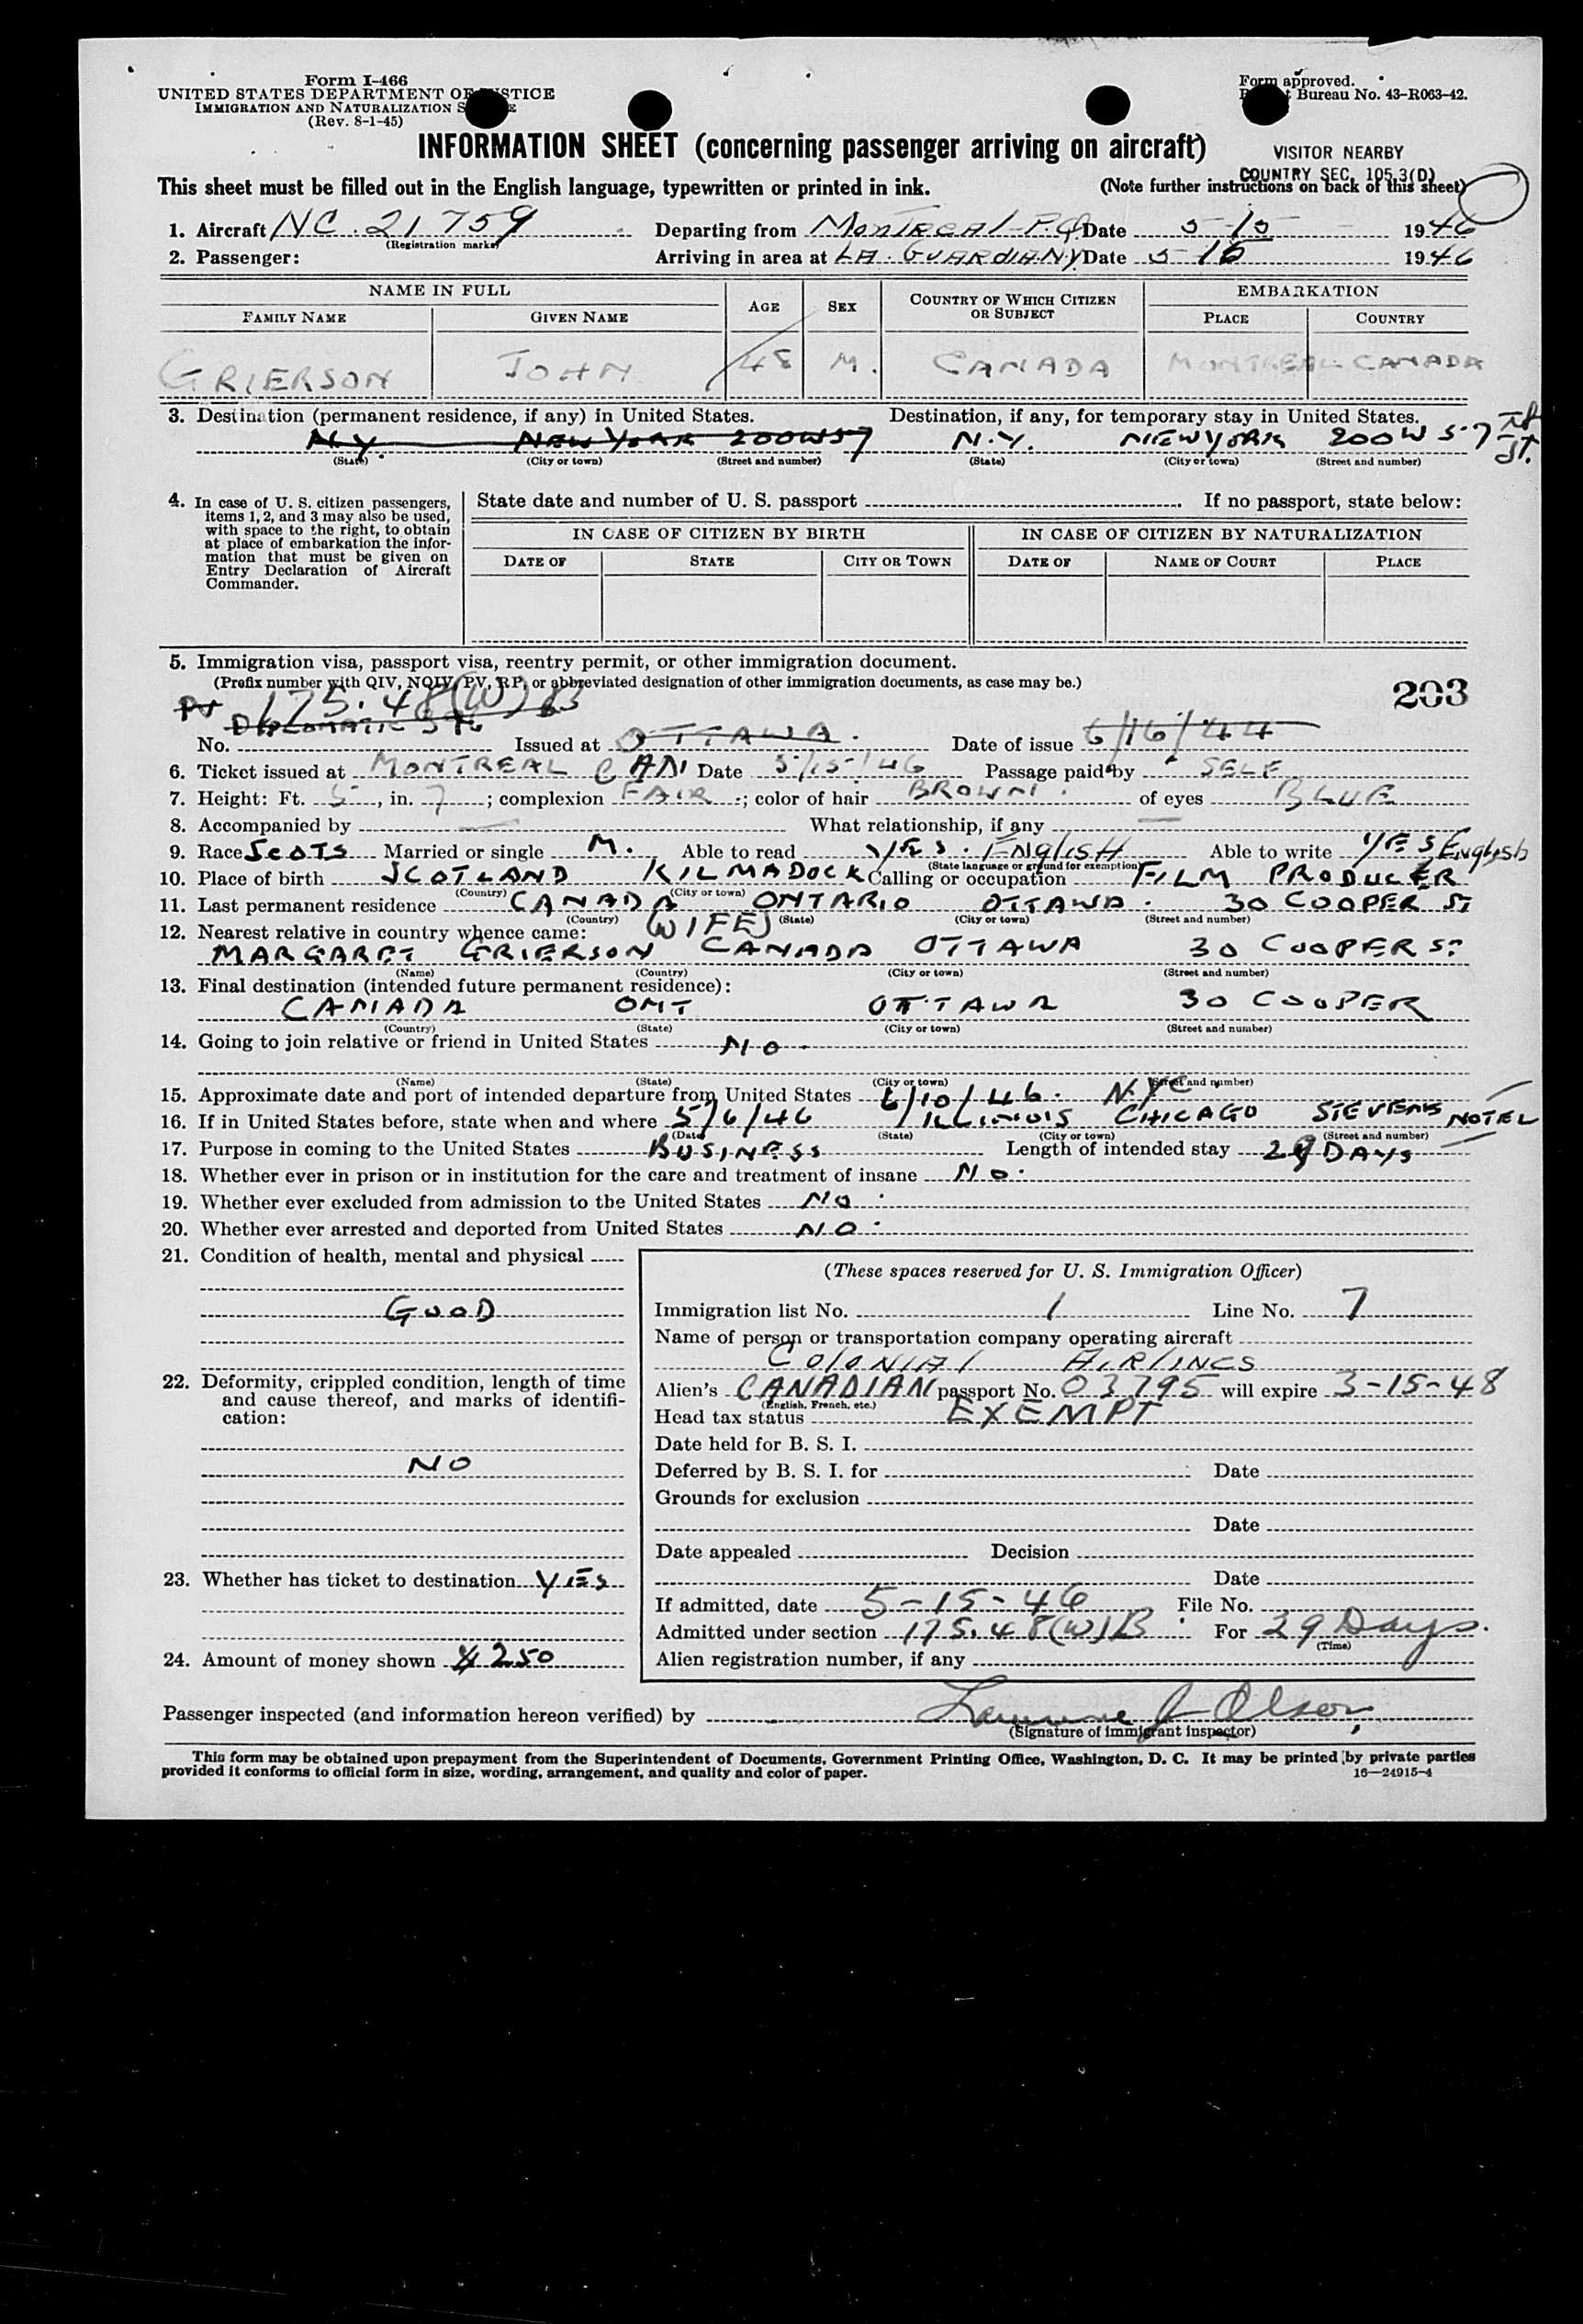 Form I-466
UNITED STATES DEPARTMENT OF JUSTICE
IMMIGRATION AND NATURALIZATION
(Rev. 8-1-45)
Form approved.
Bureau No. 43-R063-42.
INFORMATION SHEET (concerning passenger arriving on aircraft)
VISITOR NEARBY
COUNTRY SEC. 105.3(D)
This sheet must be filled out in the English language, typewritten or printed in ink. (Note further instructions on back of this sheet)
1. Aircraft NC. 21759 Departing from MONTREAL P.Q. Date 5-15 1946
(Registration marks)
2. Passenger: Arriving in area at LA. GUARDIA N.Y. Date 5-15 1946
NAME IN FULL AGE SEX COUNTRY OF WHICH CITIZEN OR SUBJECT EMBARKATION
FAMILY NAME GIVEN NAME PLACE COUNTRY
GRIERSON JOHN 48 M. CANADA MONTREAL CANADA
3. Destination (permanent residence, if any) in United States. Destination, if any, for temporary stay in United States.
N.Y. NEW YORK 200 W 57 N.Y. NEW YORK 200 W 57 TH ST.
(State) (City or town) (Street and number) (State) (City or town) (Street and number)
4. In case of U. S. citizen passengers, items 1, 2, and 3 may also be used, with space to the right, to obtain at place of embarkation the information that must be given on Entry Declaration of Aircraft Commander.
State date and number of U. S. passport If no passport, state below:
IN CASE OF CITIZEN BY BIRTH IN CASE OF CITIZEN BY NATURALIZATION
DATE OF STATE CITY OR TOWN DATE OF NAME OF COURT PLACE
5. Immigration visa, passport visa, reentry permit, or other immigration document.
(Prefix number with QIV, NQIV, PV, RP, or abbreviated designation of other immigration documents, as case may be.)
203
PV 175.48(W)B
DIPLOMATIC
No. Issued at OTTAWA. Date of issue 6/16/44
6. Ticket issued at MONTREAL CAN Date 5/15/46 Passage paid by SELF
7. Height: Ft. 5, in. 7; complexion FAIR; color of hair BROWN. of eyes BLUE
8. Accompanied by — What relationship, if any —
9. Race SCOTS Married or single M. Able to read YES. ENGLISH Able to write YES English
(State language or ground for exemption)
10. Place of birth SCOTLAND KILMADOCK Calling or occupation FILM PRODUCER
(Country) (City or town)
11. Last permanent residence CANADA ONTARIO OTTAWA. 30 COOPER ST
(Country) (State) (City or town) (Street and number)
12. Nearest relative in country whence came: (WIFE)
MARGARET GRIERSON CANADA OTTAWA 30 COOPER ST.
(Name) (Country) (City or town) (Street and number)
13. Final destination (intended future permanent residence):
CANADA ONT OTTAWA 30 COOPER
(Country) (State) (City or town) (Street and number)
14. Going to join relative or friend in United States NO
(Name) (State) (City or town) (Street and number)
15. Approximate date and port of intended departure from United States 6/10/46. NYC
16. If in United States before, state when and where 5/6/46 ILLINOIS CHICAGO STEVENS HOTEL
(Date) (State) (City or town) (Street and number)
17. Purpose in coming to the United States BUSINESS Length of intended stay 29 DAYS
18. Whether ever in prison or in institution for the care and treatment of insane NO.
19. Whether ever excluded from admission to the United States NO.
20. Whether ever arrested and deported from United States NO.
21. Condition of health, mental and physical
GOOD
22. Deformity, crippled condition, length of time and cause thereof, and marks of identification:
NO
23. Whether has ticket to destination YES
24. Amount of money shown $250
(These spaces reserved for U. S. Immigration Officer)
Immigration list No. 1 Line No. 7
Name of person or transportation company operating aircraft
COLONIAL AIRLINES
Alien's CANADIAN passport No. 03795 will expire 3-15-48
(English, French, etc.)
Head tax status EXEMPT
Date held for B. S. I.
Deferred by B. S. I. for Date
Grounds for exclusion
Date
Date appealed Decision
Date
If admitted, date 5-15-46 File No.
Admitted under section 175.48(W)B For 29 Days.
(Time)
Alien registration number, if any
Passenger inspected (and information hereon verified) by Lawrence J Olson
(Signature of immigrant inspector)
This form may be obtained upon prepayment from the Superintendent of Documents, Government Printing Office, Washington, D. C. It may be printed by private parties
provided it conforms to official form in size, wording, arrangement, and quality and color of paper.
16—24915-4